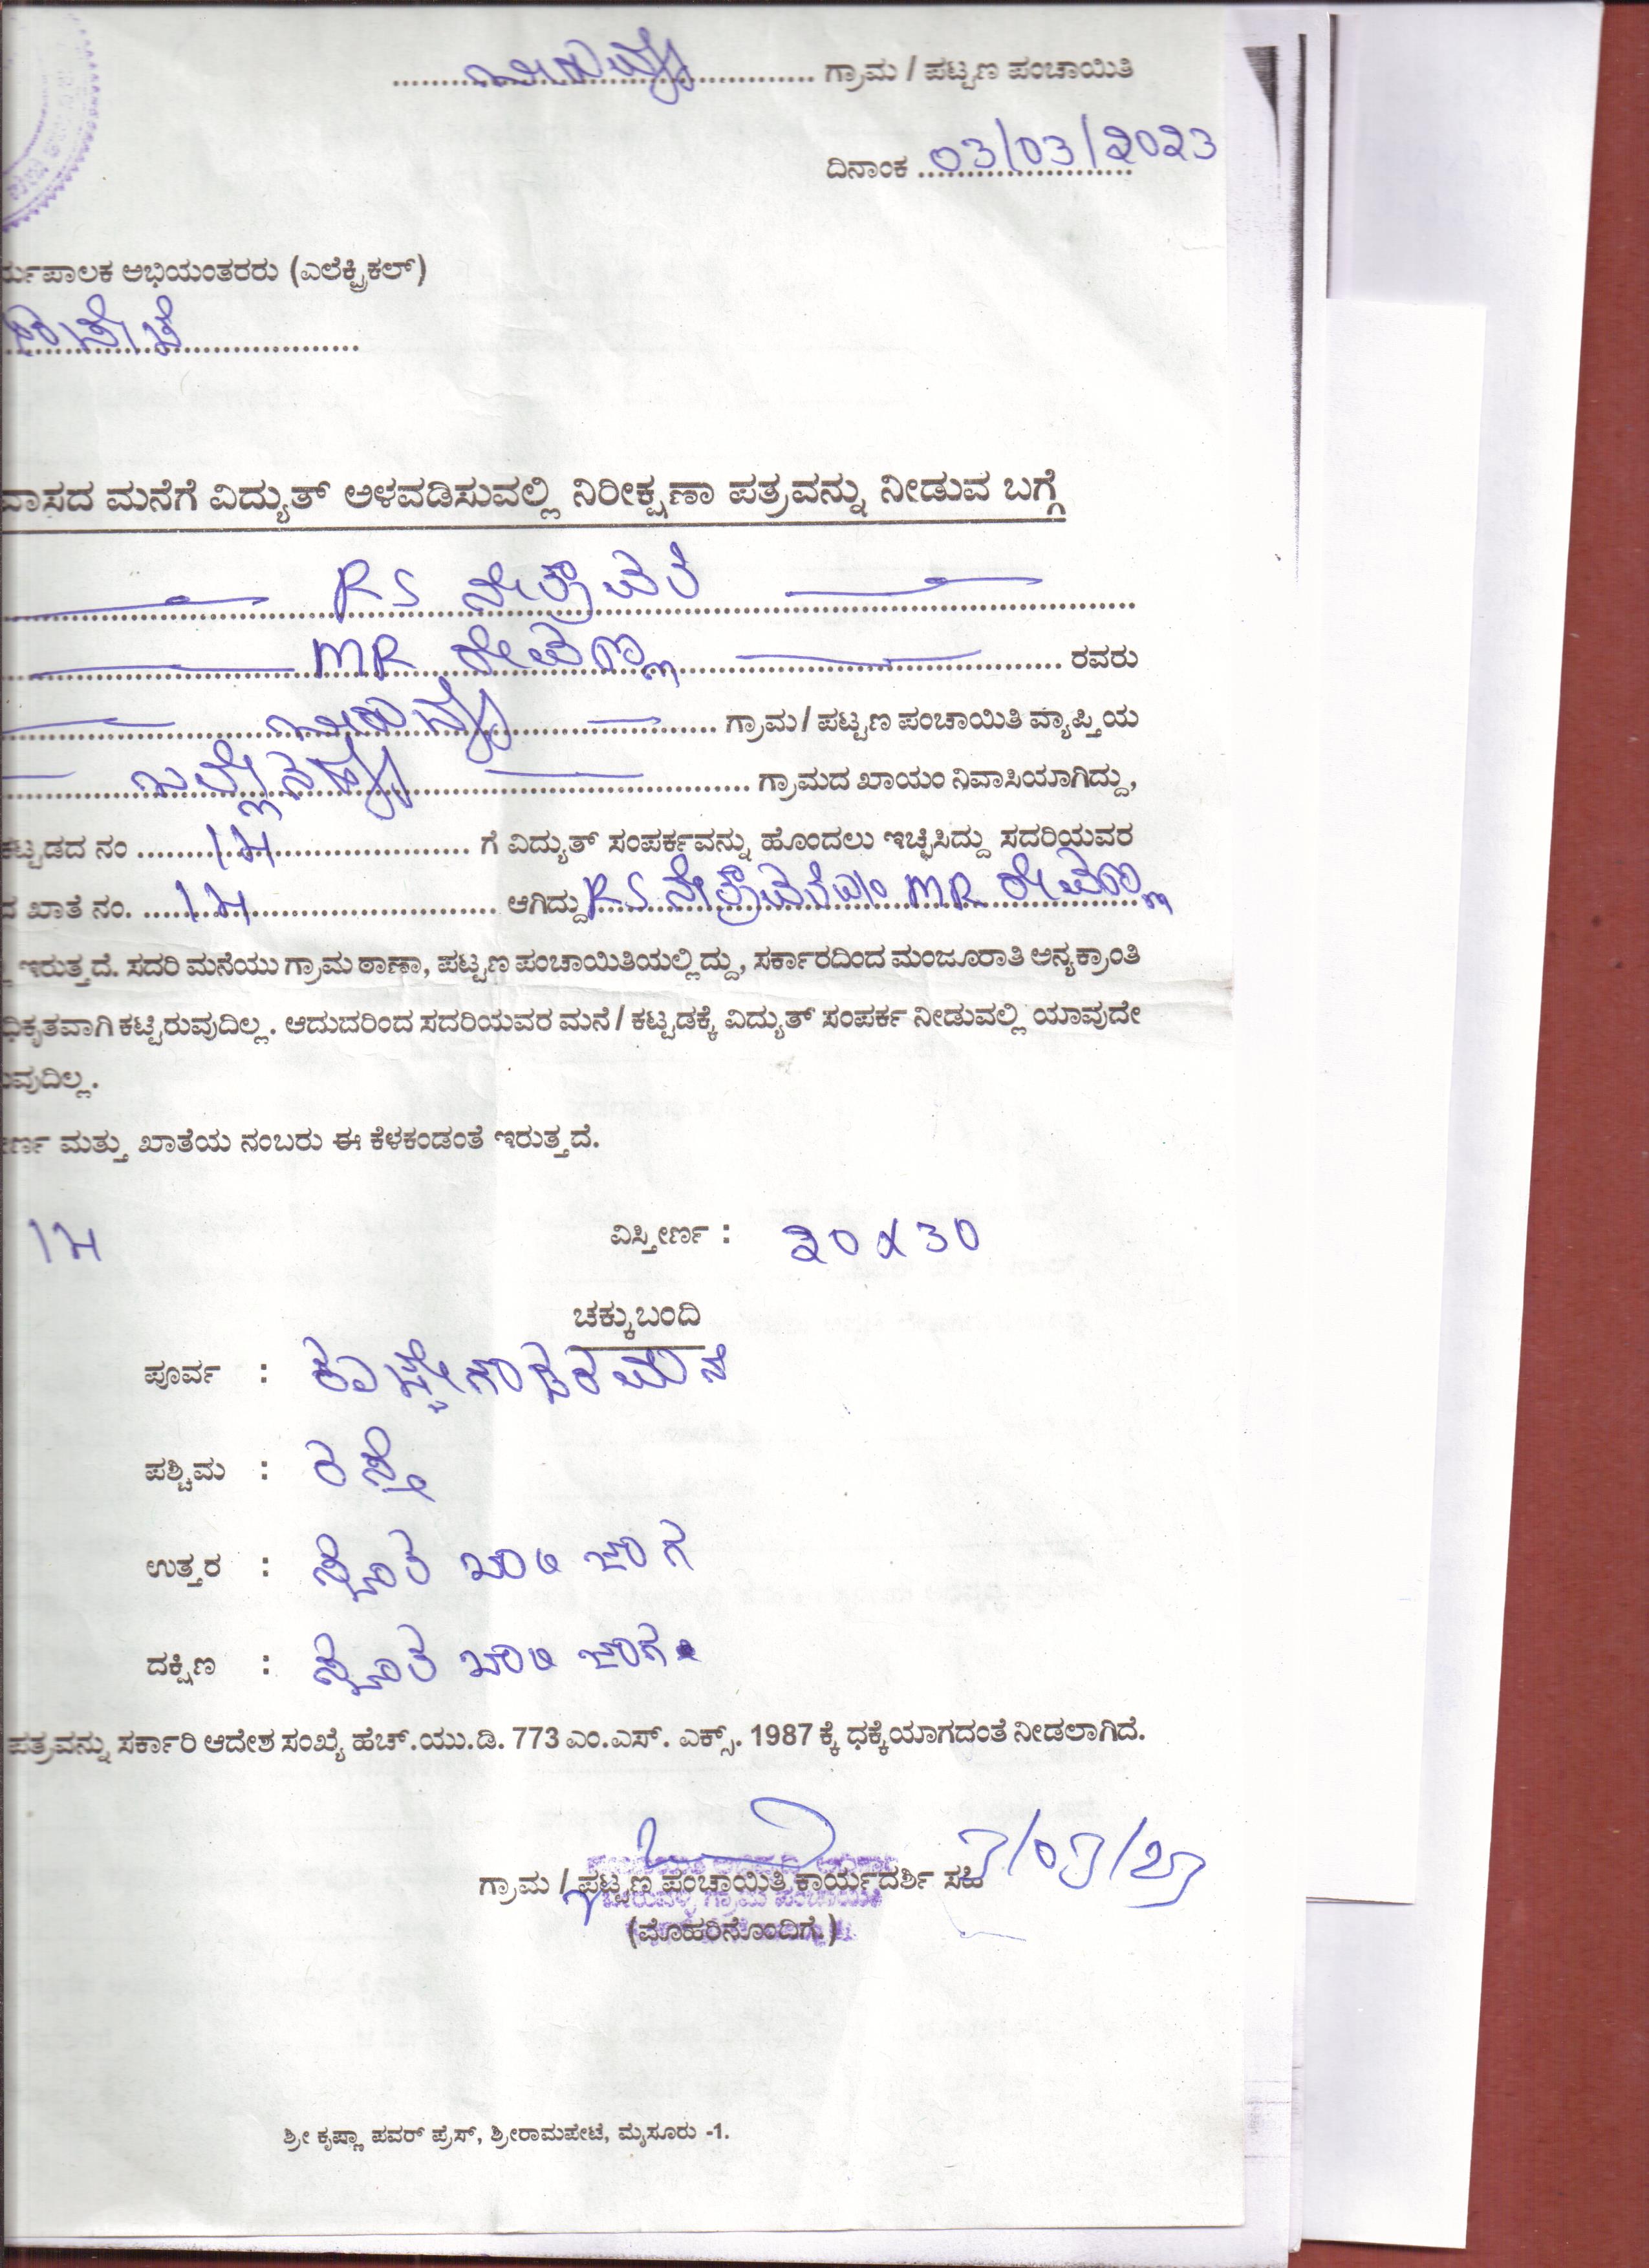 ಗ್ರಾಮ / ಪಟ್ಟಣ ಪಂಚಾಯಿತಿ
ದಿನಾಂಕ 03/03/2023
ರ್ಯಪಾಲಕ ಅಭಿಯಂತರರು (ಎಲೆಕ್ಟ್ರಿಕಲ್)
ವಾಸದ ಮನೆಗೆ ವಿದ್ಯುತ್ ಅಳವಡಿಸುವಲ್ಲಿ ನಿರೀಕ್ಷಣಾ ಪತ್ರವನ್ನು ನೀಡುವ ಬಗ್ಗೆ
RS ನೇತ್ರಾವತಿ
MR ರೇವಣ್ಣ ರವರು
ಗ್ರಾಮ / ಪಟ್ಟಣ ಪಂಚಾಯಿತಿ ವ್ಯಾಪ್ತಿಯ
ಗ್ರಾಮದ ಖಾಯಂ ನಿವಾಸಿಯಾಗಿದ್ದು,
ಕಟ್ಟಡದ ನಂ ಗೆ ವಿದ್ಯುತ್ ಸಂಪರ್ಕವನ್ನು ಹೊಂದಲು ಇಚ್ಛಿಸಿದ್ದು ಸದರಿಯವರ
ದ ಖಾತೆ ನಂ. ಆಗಿದ್ದು RS ನೇತ್ರಾವತಿ MR ರೇವಣ್ಣ
ಇರುತ್ತದೆ. ಸದರಿ ಮನೆಯು ಗ್ರಾಮ ಠಾಣಾ, ಪಟ್ಟಣ ಪಂಚಾಯಿತಿಯಲ್ಲಿದ್ದು, ಸರ್ಕಾರದಿಂದ ಮಂಜೂರಾತಿ ಅನ್ಯಕ್ರಾಂತಿ
ಧಿಕೃತವಾಗಿ ಕಟ್ಟಿರುವುದಿಲ್ಲ. ಆದುದರಿಂದ ಸದರಿಯವರ ಮನೆ / ಕಟ್ಟಡಕ್ಕೆ ವಿದ್ಯುತ್ ಸಂಪರ್ಕ ನೀಡುವಲ್ಲಿ ಯಾವುದೇ
ುವುದಿಲ್ಲ.
ೀರ್ಣ ಮತ್ತು ಖಾತೆಯ ನಂಬರು ಈ ಕೆಳಕಂಡಂತೆ ಇರುತ್ತದೆ.
ವಿಸ್ತೀರ್ಣ : 30 x 30
ಚಕ್ಕುಬಂದಿ
ಪೂರ್ವ :
ಪಶ್ಚಿಮ : ರಸ್ತೆ
ಉತ್ತರ : ಸ್ವಂತ ಖಾಲಿ ಜಾಗ
ದಕ್ಷಿಣ : ಸ್ವಂತ ಖಾಲಿ ಜಾಗ
ಪತ್ರವನ್ನು ಸರ್ಕಾರಿ ಆದೇಶ ಸಂಖ್ಯೆ ಹೆಚ್.ಯು.ಡಿ. 773 ಎಂ.ಎಸ್. ಎಕ್ಸ್. 1987 ಕ್ಕೆ ಧಕ್ಕೆಯಾಗದಂತೆ ನೀಡಲಾಗಿದೆ.
3/03/23
ಗ್ರಾಮ / ಪಟ್ಟಣ ಪಂಚಾಯಿತಿ ಕಾರ್ಯದರ್ಶಿ ಸಹಿ
(ಮೊಹರಿನೊಂದಿಗೆ)
ಶ್ರೀ ಕೃಷ್ಣಾ ಪವರ್ ಪ್ರೆಸ್, ಶ್ರೀರಾಮಪೇಟೆ, ಮೈಸೂರು -1.